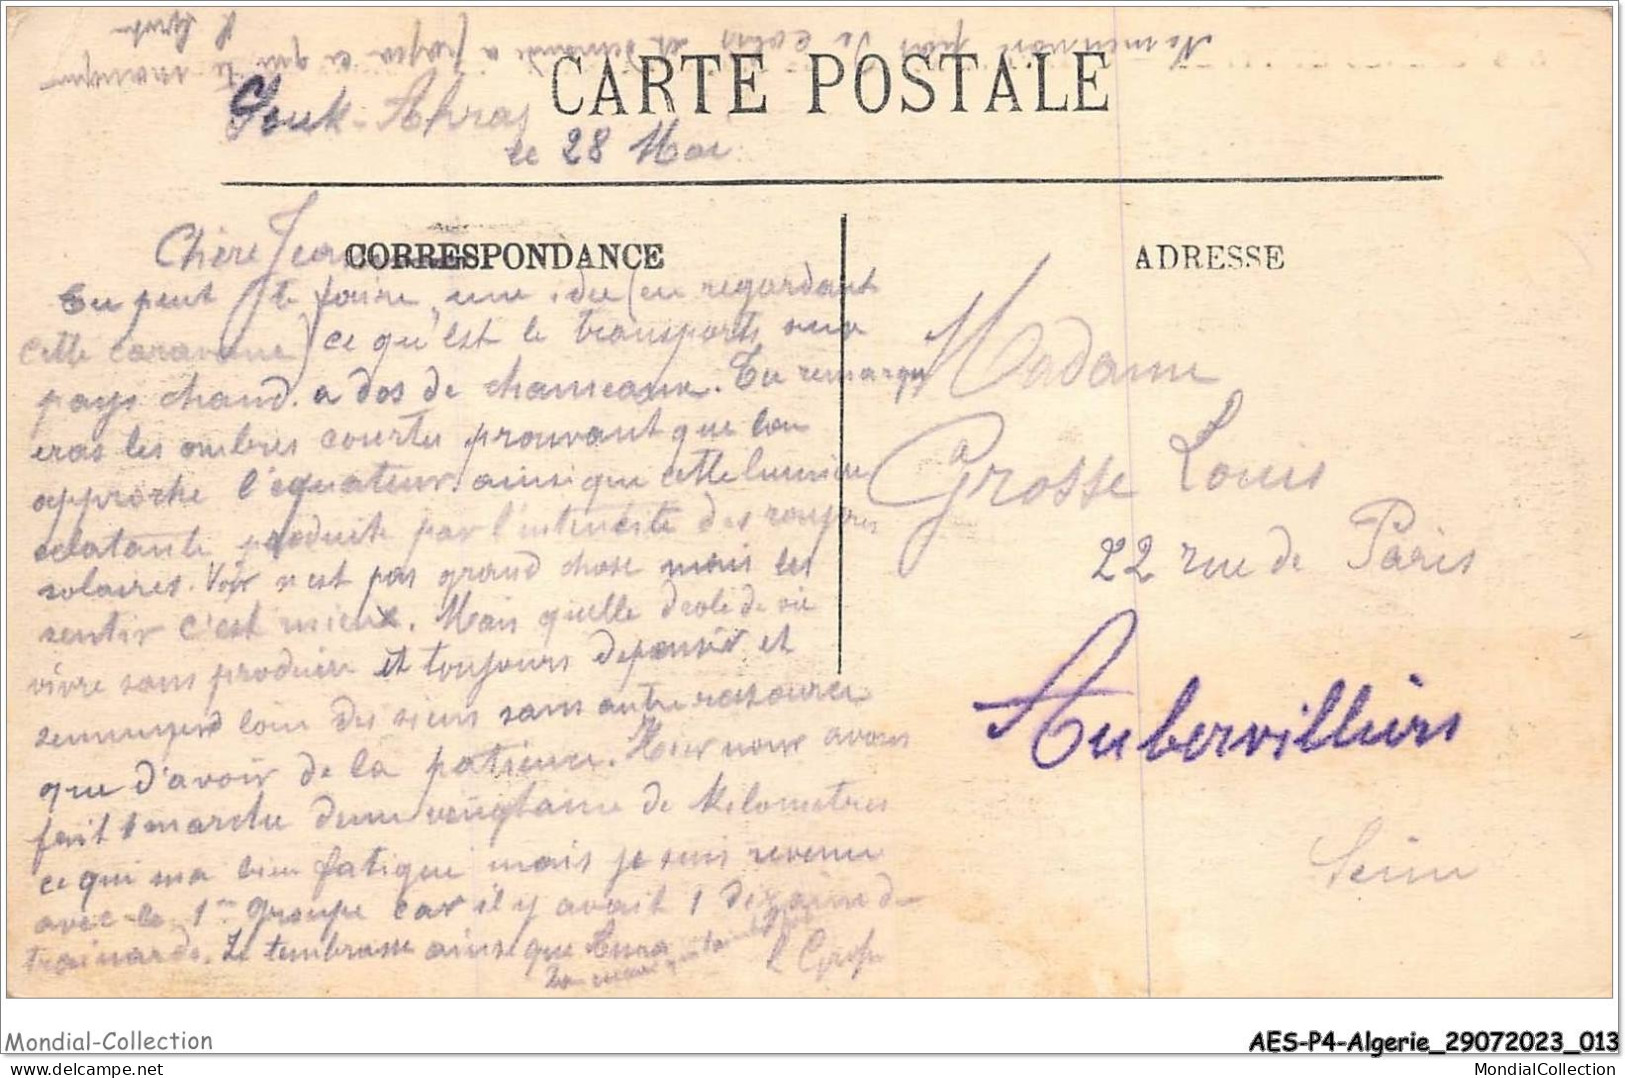 Ne m'envoie pas de colis et demande a
CARTE POSTALE
Souk-Ahras
le 28 Mai
CORRESPONDANCE
ADRESSE
Chère Jeanne
Tu peut te faire une idee (en regardant
cette caravane) ce qu'est le transports aux
pays chaud. a dos de chameaux. Tu remarqu
eras les ombres courtes prouvant que lon
approche l'equateur. ainsi que cette lumière
eclatante produite par l'intensité des rayons
solaires. Voir n'est pas grand chose mais les
sentir c'est mieux. Mais quelle drole de vie
vivre sans produire et toujours depenser et
sennuyer loin des siens sans autre ressource
que d'avoir de la patience. Hier nous avons
fait 1 marche dune vingtaine de kilometres
ce qui ma bien fatigue mais je suis revenu
avec le 1er groupe car il y avait 1 dizaine de
trainards. Je tembrasse ainsi que
Madame
Grosse Louis
22 rue de Paris
Aubervilliers
Seine
Mondial-Collection
AES-P4-Algerie_29072023_013
MondialCollection